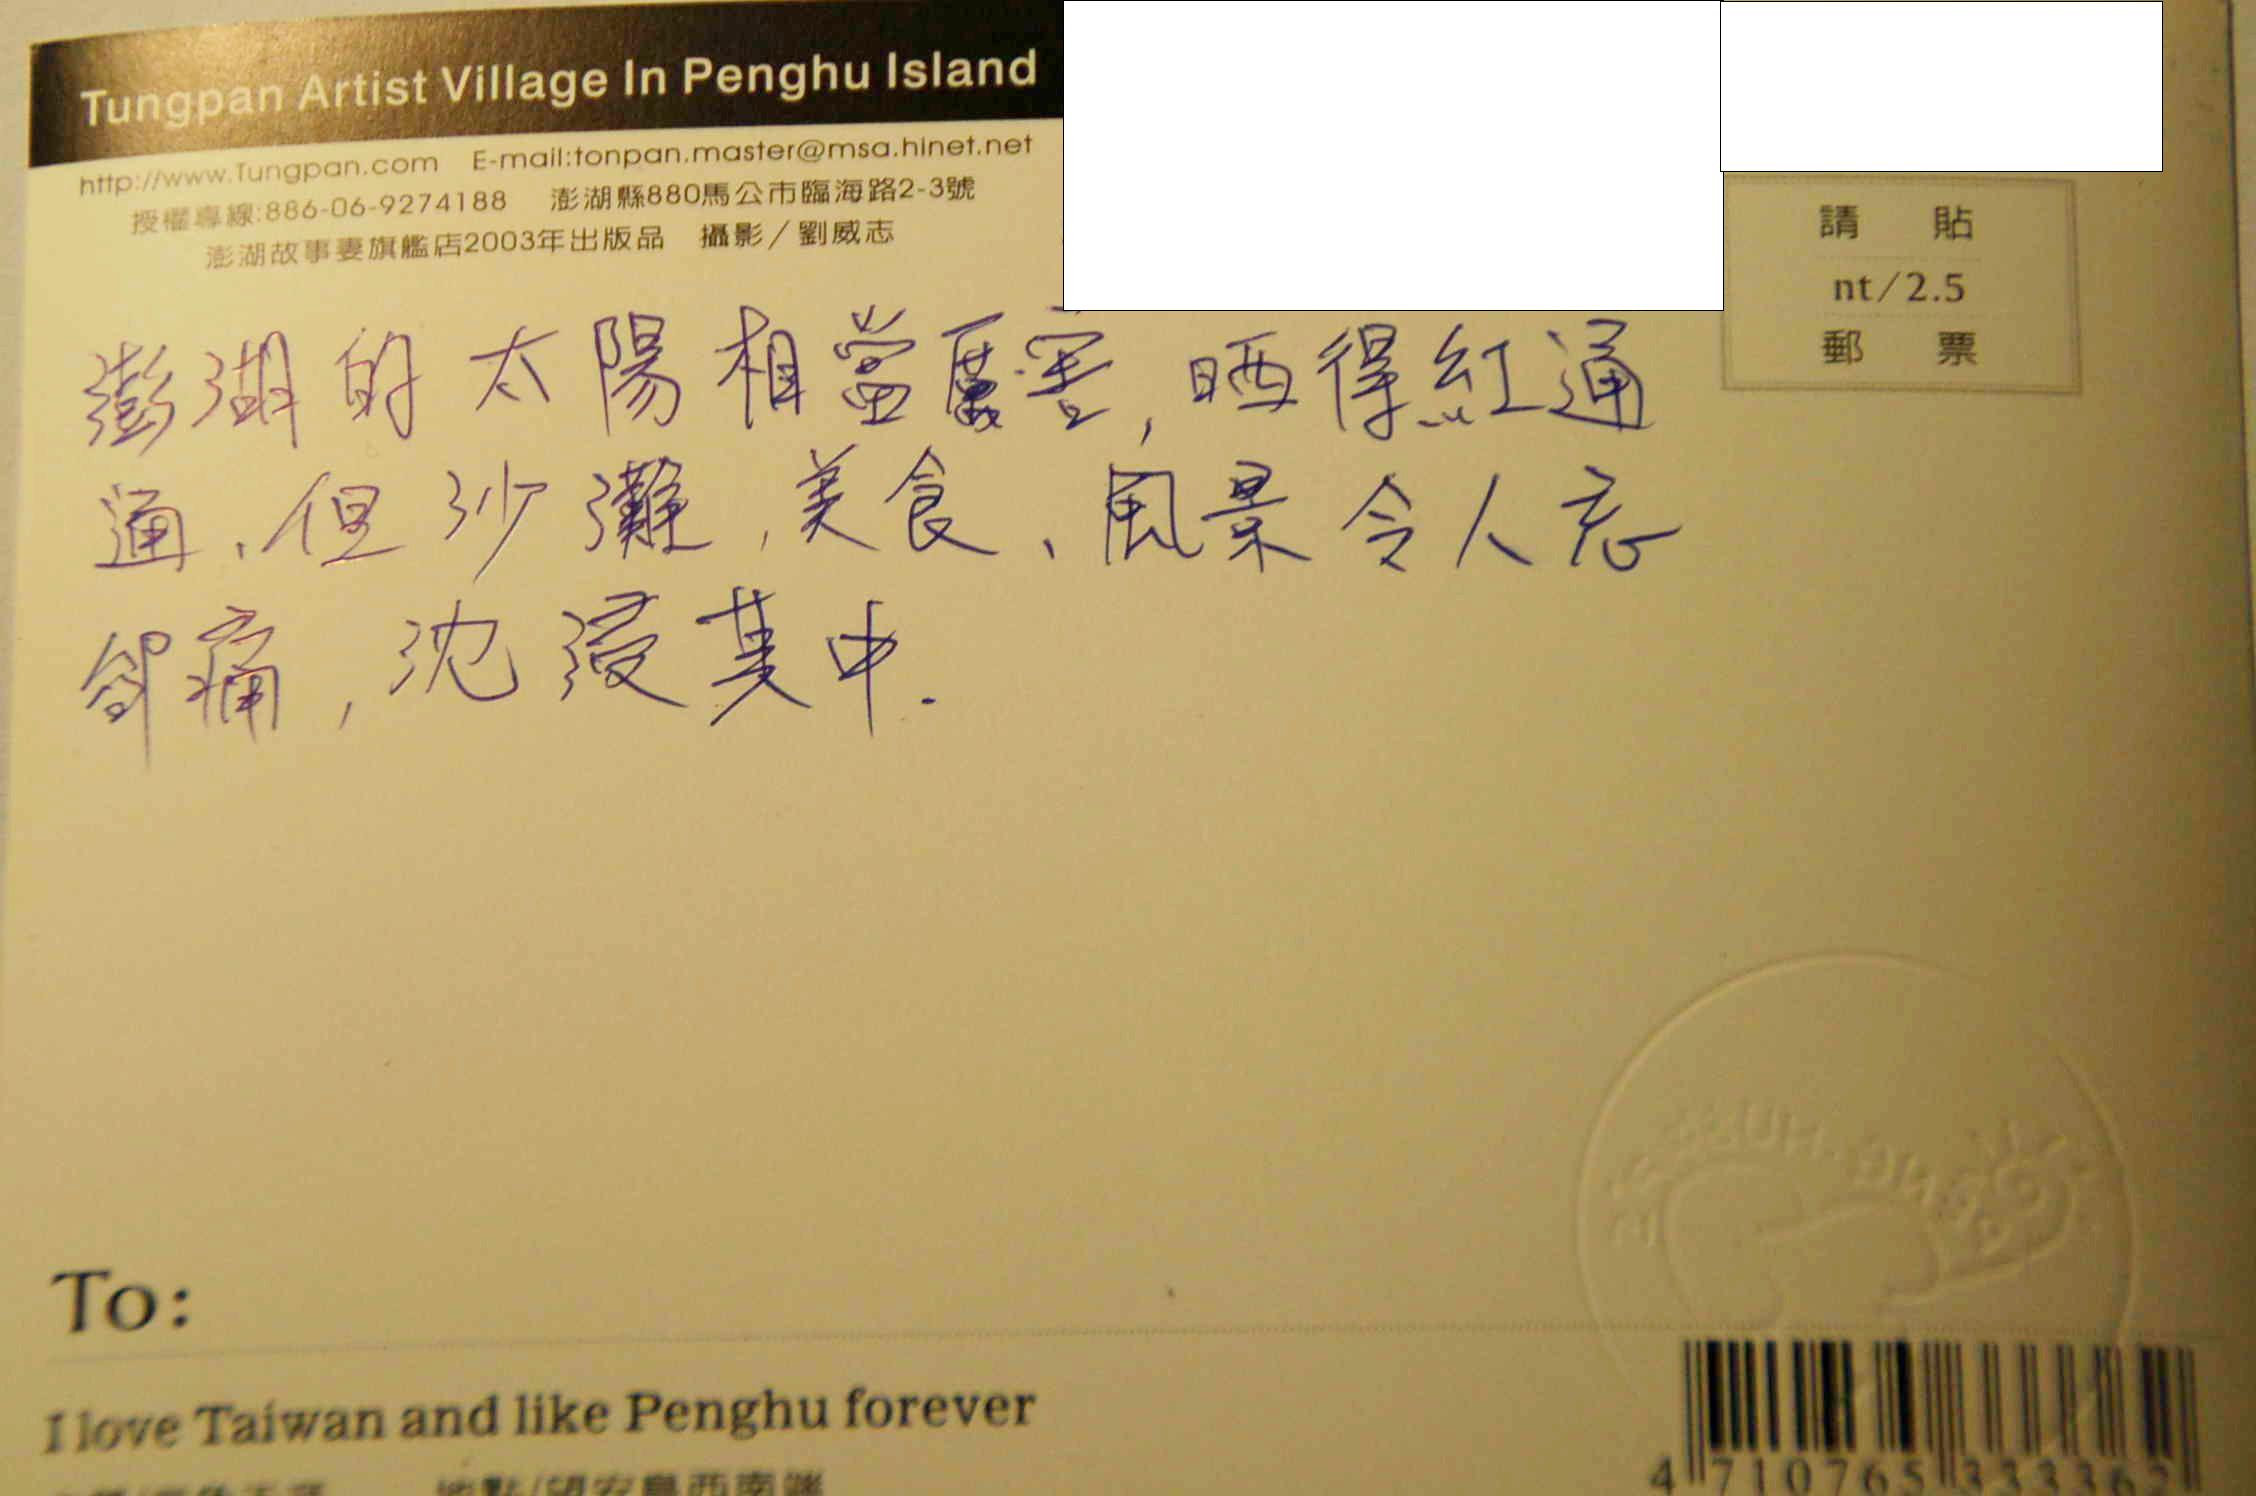 Tungpan Artist Village In Penghu Island
http://www.Tungpan.com E-mail:tonpan.master@msa.hinet.net
授權專線:886-06-9274188 澎湖縣880馬公市臨海路2-3號
澎湖故事妻旗艦店2003年出版品 攝影/劉威志
請 貼
nt/2.5
郵 票
澎湖的太陽相當厲害,晒得紅通
通、但沙灘、美食、風景令人忘
卻痛,沈浸其中.
To:
I love Taiwan and like Penghu forever
地點/望安島西南端
4 710765 333362